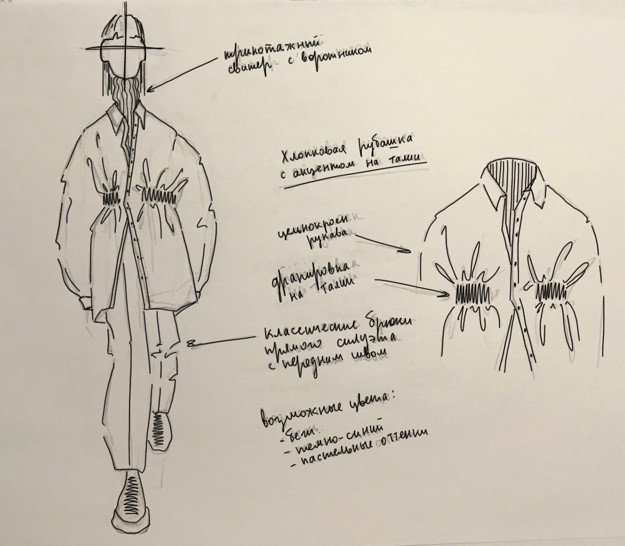 трикотажный
свитер с воротником
Хлопковая рубашка
с акцентом на талии
цельнокроен.
рукава
драпировка
на талии
классические брюки
прямого силуэта
с передним швом
возможные цвета:
- беж.
- темно-синий
- пастельные оттенки